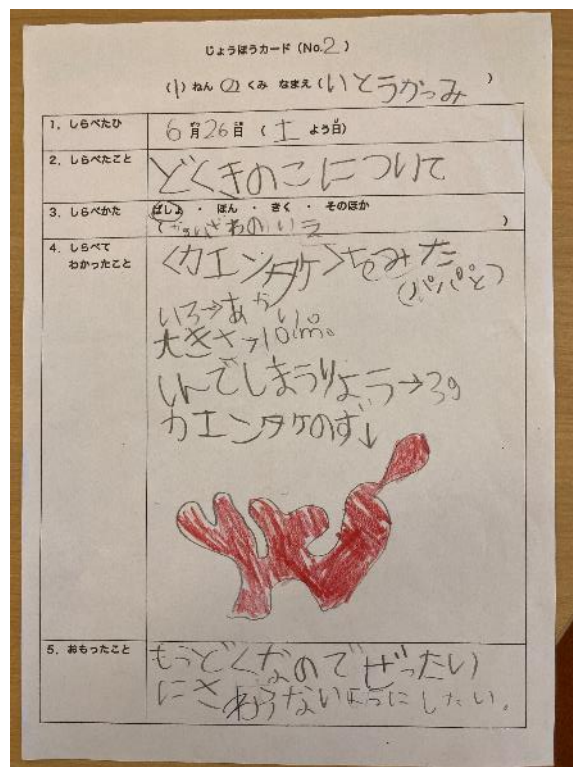 じょうほうカード (No.2)
(1) ねん (2) くみ なまえ (いとうかつみ)
1. しらべたひ
6月26日 (土よう日)
2. しらべたこと
どくきのこについて
3. しらべかた
ばしょ ・ ほん ・ きく ・ そのほか
(かるいざわのいえ)
4. しらべて
わかったこと
<カエンタケ>をみた
(パパと)
いろ→あかい。
大きさ→10cm。
しんでしまうりょう→3g
カエンタケのず↓
5. おもったこと
もうどくなのでぜったい
にさわらないようにしたい。